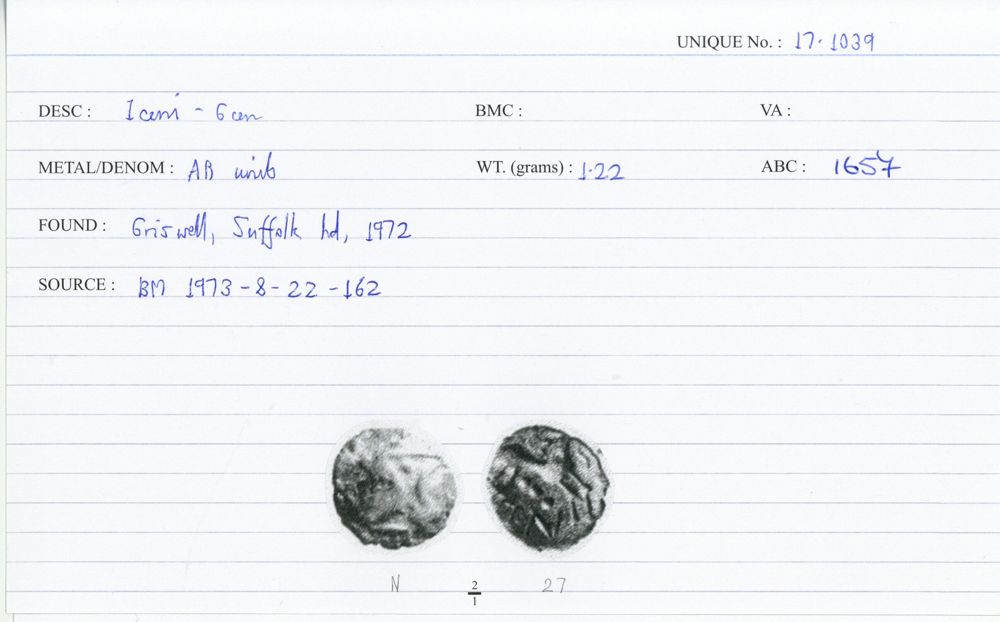 UNIQUE No. : 17.1039
DESC : Iceni - Ecen BMC : VA :
METAL/DENOM : AR unit WT. (grams) : 1.22 ABC : 1657
FOUND : Eriswell, Suffolk hd, 1972
SOURCE : BM 1973-8-22-162
N 2/1 27